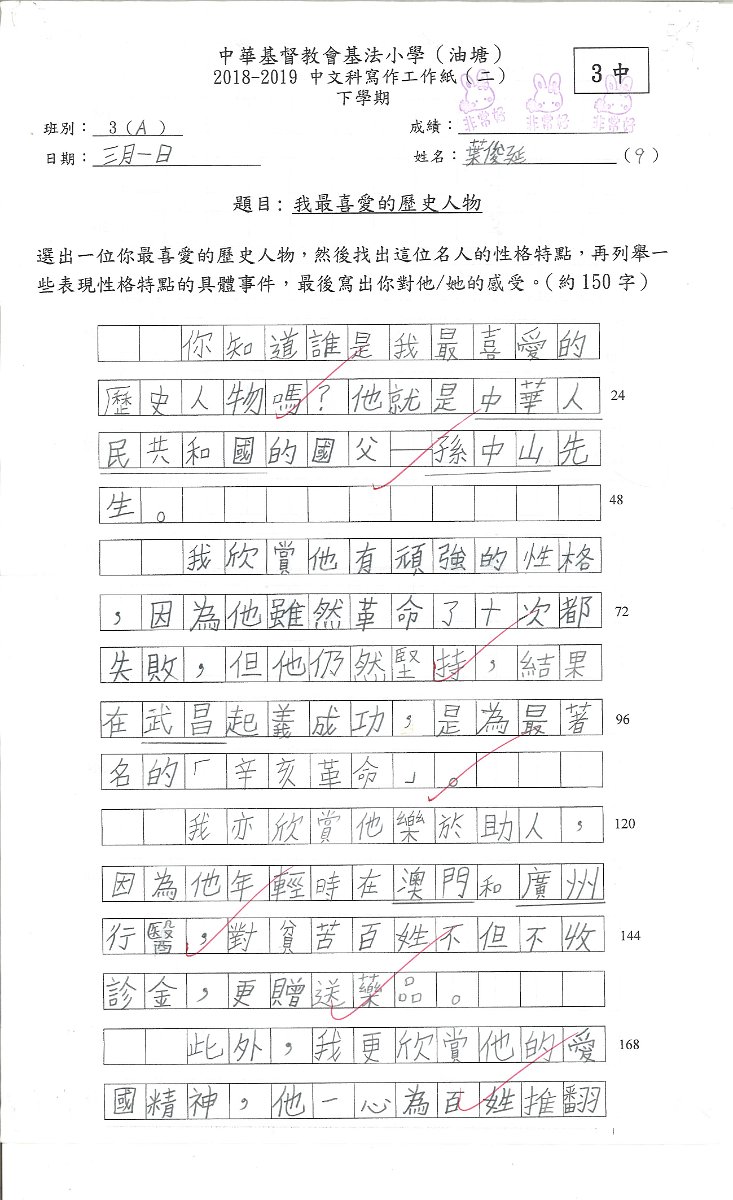 中華基督教會基法小學（油塘）
2018-2019 中文科寫作工作紙（二）
下學期
3中
非常好 非常好 非常好
班別：3（A）
成績：
日期：三月一日
姓名：葉俊延（9）
題目：我最喜愛的歷史人物
選出一位你最喜愛的歷史人物，然後找出這位名人的性格特點，再列舉一
些表現性格特點的具體事件，最後寫出你對他/她的感受。（約150字）
你知道誰是我最喜愛的
歷史人物嗎？他就是中華人 24
民共和國的國父──孫中山先
生。 48
我欣賞他有頑強的性格
，因為他雖然革命了十次都 72
失敗，但他仍然堅持，結果
在武昌起義成功，是為最著 96
名的「辛亥革命」。
我亦欣賞他樂於助人， 120
因為他年輕時在澳門和廣州
行醫，對貧苦百姓不但不收 144
診金，更贈送藥品。
此外，我更欣賞他的愛 168
國精神，他一心為百姓推翻